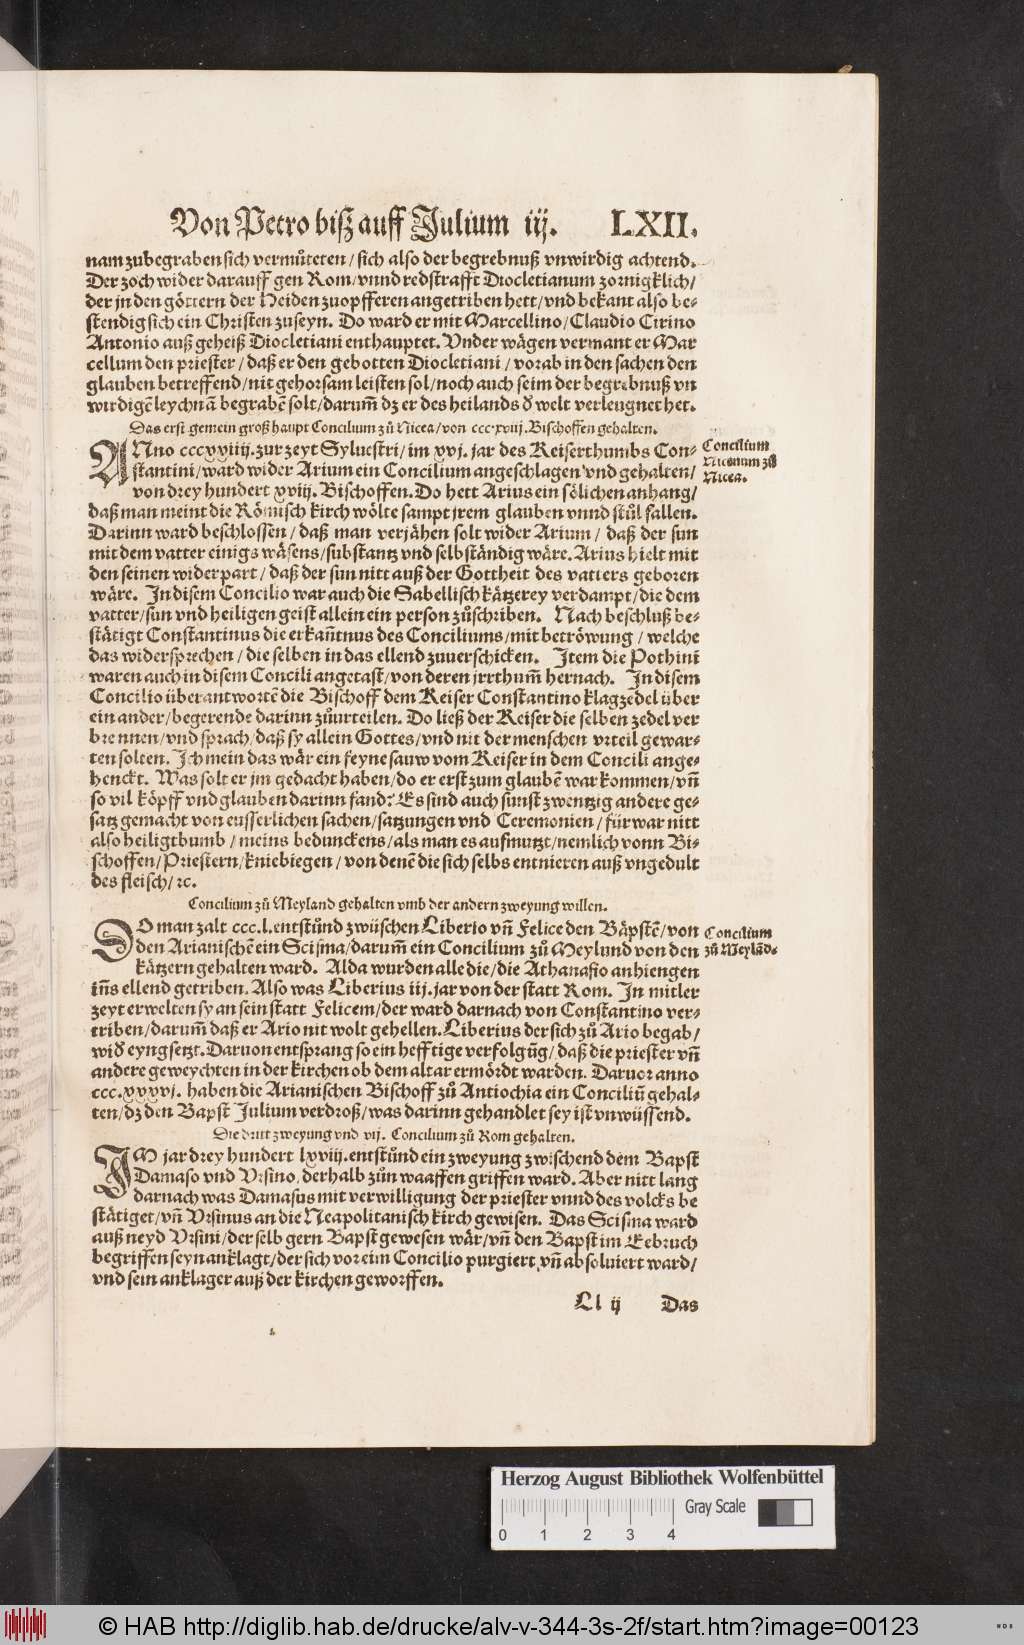 Von Petro biß auff Julium iij. LXII.
nam zubegraben sich vermůteten / sich also der begrebnuß vnwirdig achtend.
Der zoch wider darauff gen Rom / vnnd redstrafft Diocletianum zornigklich /
der jn den göttern der Heiden zuopfferen angetriben hett / vnd bekant also be-
stendig sich ein Christen zuseyn. Do ward er mit Marcellino / Claudio Cirino
Antonio auß geheiß Diocletiani enthauptet. Vnder wägen vermant er Mar
cellum den priester / daß er den gebotten Diocletiani / vorab in den sachen den
glauben betreffend / nit gehorsam leisten sol / noch auch seim der begrebnuß vn
wirdigē leychnā begrabē solt / darum̄ dz er des heilands d̕ welt verleugnet het.
Das erst gemein groß haupt Concilium zů Nicea / von ccc.xviij. Bischoffen gehalten.
ANno cccxxiiij. zur zeyt Syluestri / im xvj. jar des Keiserthumbs Con-
stantini / ward wider Arium ein Concilium angeschlagen vnd gehalten /
von drey hundert xviij. Bischoffen. Do hett Arius ein sölichen anhang /
Concilium
Nicenum zů
Nicea.
daß man meint die Römisch kirch wölte sampt jrem glauben vnnd stůl fallen.
Darinn ward beschlossen / daß man verjähen solt wider Arium / daß der sun
mit dem vatter einigs wäsens / substantz vnd selbständig wäre. Arius hielt mit
den seinen widerpart / daß der sun nitt auß der Gottheit des vatters geboren
wäre. In disem Concilio war auch die Sabellisch kätzerey verdampt / die dem
vatter / sun vnd heiligen geist allein ein person zůschriben. Nach beschluß be-
stätigt Constantinus die erkañtnus des Conciliums / mit betröwung / welche
das widersprechen / die selben in das ellend zuuerschicken. Item die Pothini
waren auch in disem Concili angetast / von deren jrrthum̄ hernach. In disem
Concilio überantwortē die Bischoff dem Keiser Constantino klagzedel über
ein ander / begerende darinn zůurteilen. Do ließ der Keiser die selben zedel ver
brennen / vnd sprach / daß sy allein Gottes / vnd nit der menschen vrteil gewar-
ten solten. Ich mein das wär ein feyne sauw vom Keiser in dem Concili ange-
henckt. Was solt er jm gedacht haben / do er erst zum glaubē war kommen / vñ
so vil köpff vnd glauben darinn fand? Es sind auch sunst zwentzig andere ge-
satz gemacht von eusserlichen sachen / satzungen vnd Ceremonien / für war nitt
also heiligthumb / meins bedunckens / als man es aufmutzt / nemlich vonn Bi-
schoffen / Priestern / kniebiegen / von denē die sich selbs entnieren auß vngedult
des fleisch / ꝛc.
Concilium zů Meyland gehalten vmb der andern zweyung willen.
DO man zalt ccc.l. entstůnd zwüschen Liberio vñ Felice den Bäpstē / von
den Arianischē ein Scisma / darum̄ ein Concilium zů Meylund von den
kätzern gehalten ward. Alda wurden alle die / die Athanasio anhiengen
Concilium
zů Meylād.
iñs ellend getriben. Also was Liberius iij. jar von der statt Rom. In mitler
zeyt erwelten sy an sein statt Felicem / der ward darnach von Constantino ver-
triben / darum̄ daß er Ario nit wolt gehellen. Liberius der sich zů Ario begab /
wid̕ eyngsetzt. Daruon entsprang so ein hefftige verfolgūg / daß die priester vñ
andere geweychten in der kirchen ob dem altar ermördt warden. Daruor anno
ccc.xxxvj. haben die Arianischen Bischoff zů Antiochia ein Conciliū gehal-
ten / dz den Bapst Julium verdroß / was darinn gehandlet sey ist vnwüssend.
Die dritt zweyung vnd vij. Concilium zů Rom gehalten.
IM jar drey hundert lxviij. entstůnd ein zweyung zwischend dem Bapst
Damaso vnd Vrsino, derhalb zůn waaffen griffen ward. Aber nitt lang
darnach was Damasus mit verwilligung der priester vnnd des volcks be
stätiget / vñ Vrsinus an die Neapolitanisch kirch gewisen. Das Scisma ward
auß neyd Vrsini / der selb gern Bapst gewesen wär / vñ den Bapst im Eebruch
begriffen seyn anklagt / der sich vor eim Concilio purgiert vñ absoluiert ward /
vnd sein anklager auß der kirchen geworffen.
Ll ij Das
Herzog August Bibliothek Wolfenbüttel
Gray Scale
0 1 2 3 4
© HAB http://diglib.hab.de/drucke/alv-v-344-3s-2f/start.htm?image=00123